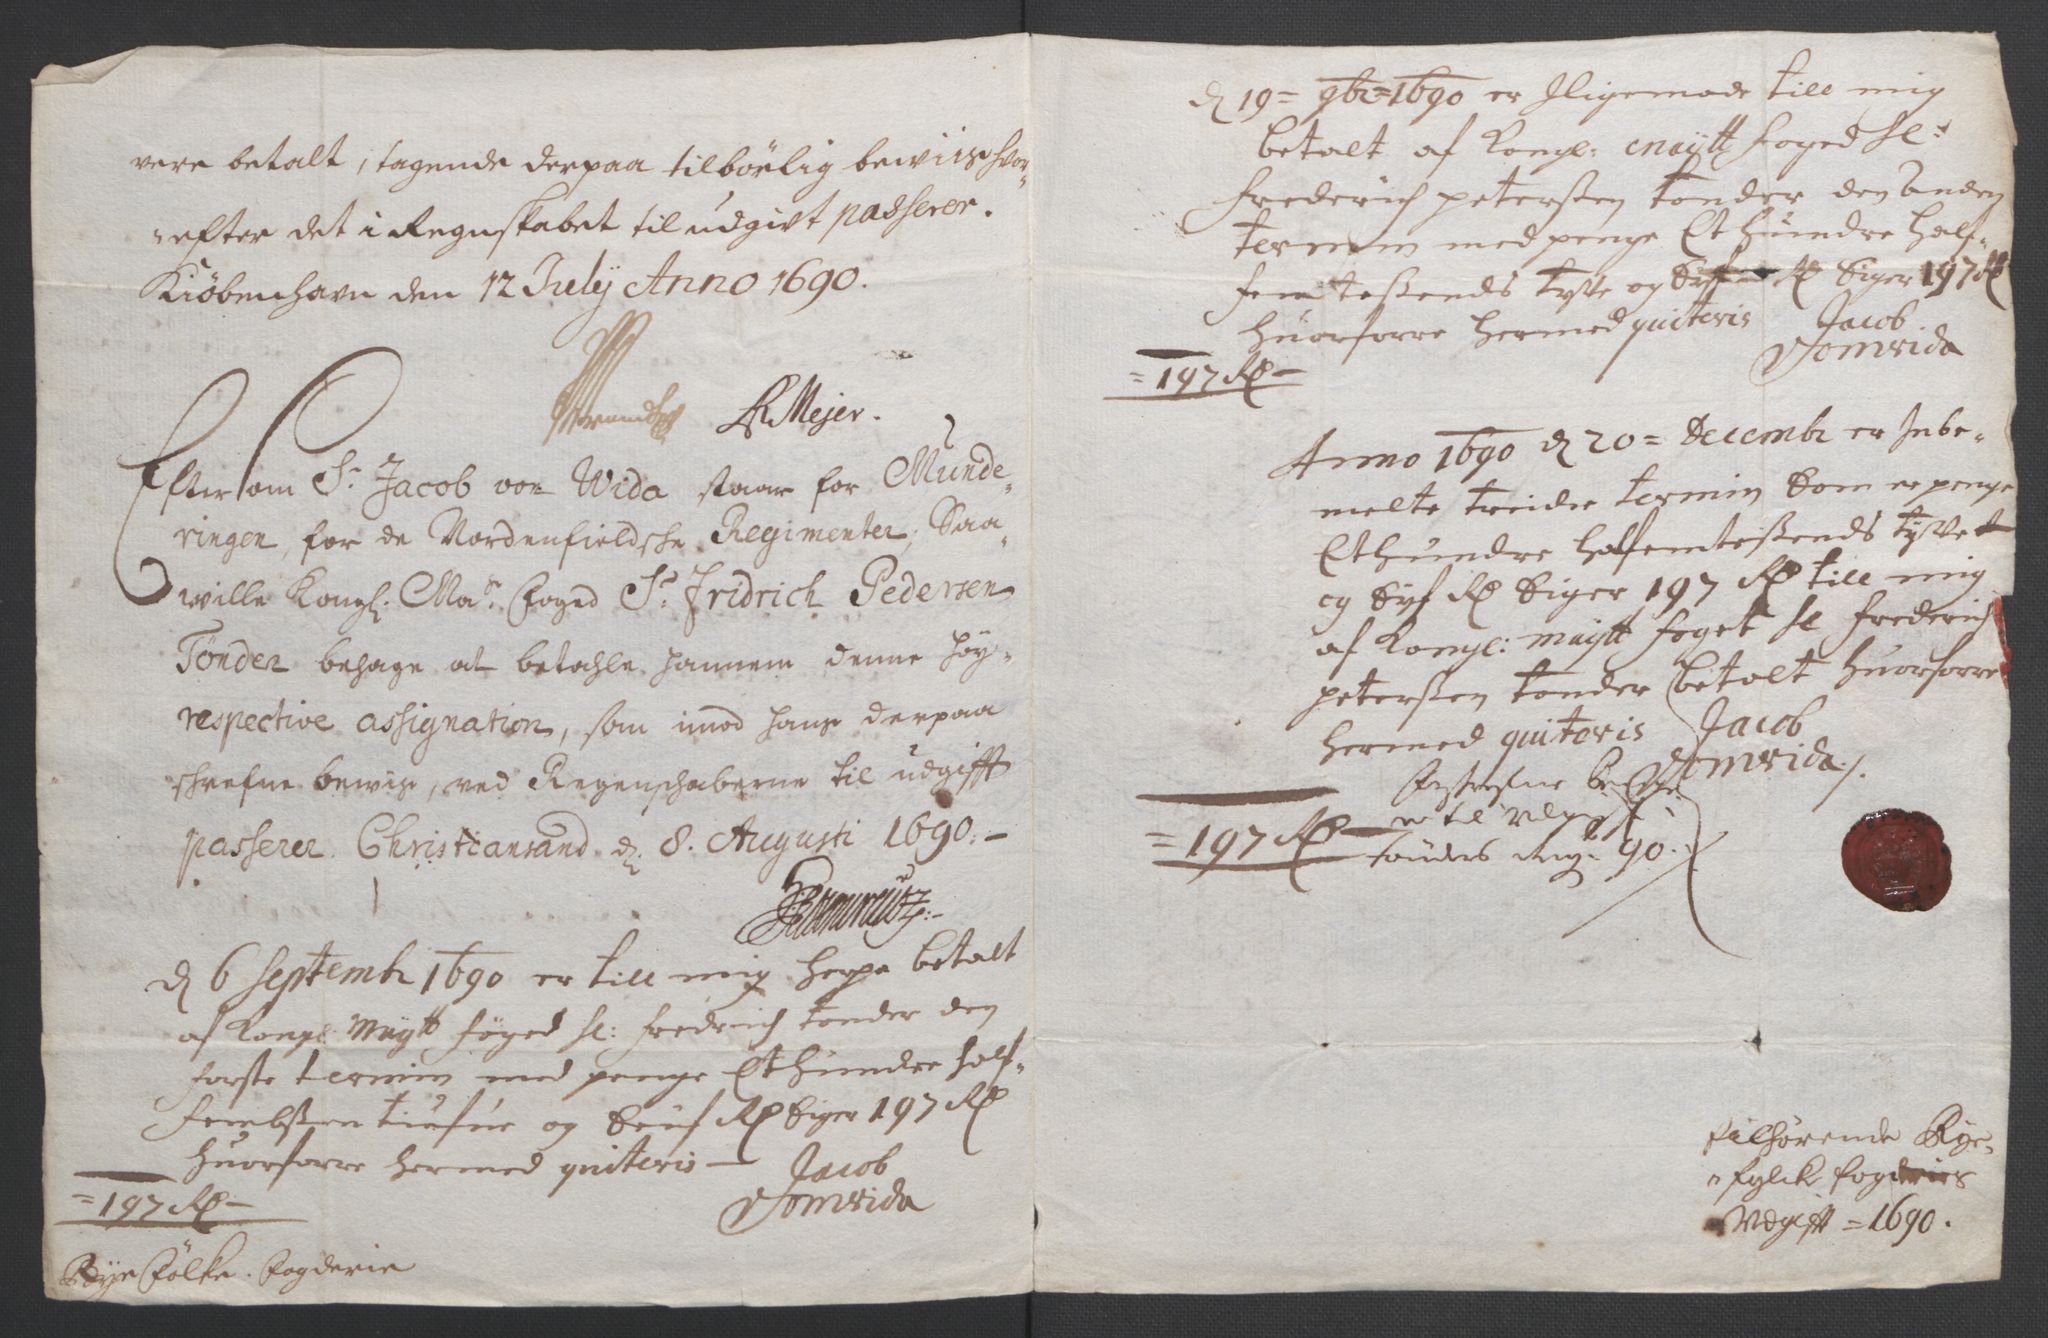 vere betalt, tagende derpaa tilbörlig beviis hvor-
efter det i Regnskabet til udgivt passerer.
Kiöbenhavn den 12 July Anno 1690.
Meyer.
Efter som Sr. Jacob von Wida staar for Munde-
ringen, for de Nordenfieldsche Regimenter, Saa
wille Kongl. Mas. Foged Sr. Fridrich Pedersen
Tönder behage at betahle hannem denne höy-
respective assignation, som imod hans derpaa
schrefne bewiis, ved Regenschaberne til udgifft
passerer. Christiansand d. 8. Augusti 1690.-
d 6 Septembr 1690 er till mig herpa betalt
af Kongl. Maÿtt foged Sl: Fredrich tonder den
forste termin med penge Et hundre half-
og Siuf Rd Siger 197 Rd
huorforre hermed quiteris
Jacob
Vomvida
=197 Rd-
Rye Fölke. Fogderie
d 19= 9br=1690 er Iligemode till mig
betalt af Kongl: Maÿtt foged Sl:
Frederich peterssen tonder den Anden
termin med penge Et hundre half-
fem tessends tyfve og Syf Rd Siger 197 Rd
huorforre hermed quiteris
Jacob
Vomvida
=197 Rd-
Anno 1690 d 20= Decembr er Inbe-
melte treide termin Som er penge
Et hundre halfemtessends tyfve
og Syf Rd Siger 197 Rd till mig
af Kongl: Maÿtt foget Sl Frederich
peterssen tonder betalt huorforre
hermed quiteris
Jacob
Vomvida./.
=197 Rd-
tönders Regn. 90.
Tilhörende Rye-
fylck fogderies
Udgifft =1690.